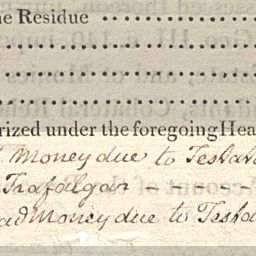 he Residue
rized under the foregoing Hea
Money due to Testat
Trafalgar
ad Money due to Testa